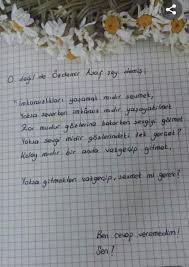 O değil de Özdemir Asaf şey demiş;
"İmkansızlıkları yaşamak mıdır sevmek,
Yoksa severken imkansız mıdır yaşayabilmek
Zor mudur gözlerine bakarken sevgiyi görmek
Yoksa sevgi midir gözlerindeki tek gerçek?
Kolay mıdır bir anda vazgeçip gitmek,
Yoksa gitmekten vazgeçip, sevmek mi gerek?
Ben cevap veremedim!
Sen?